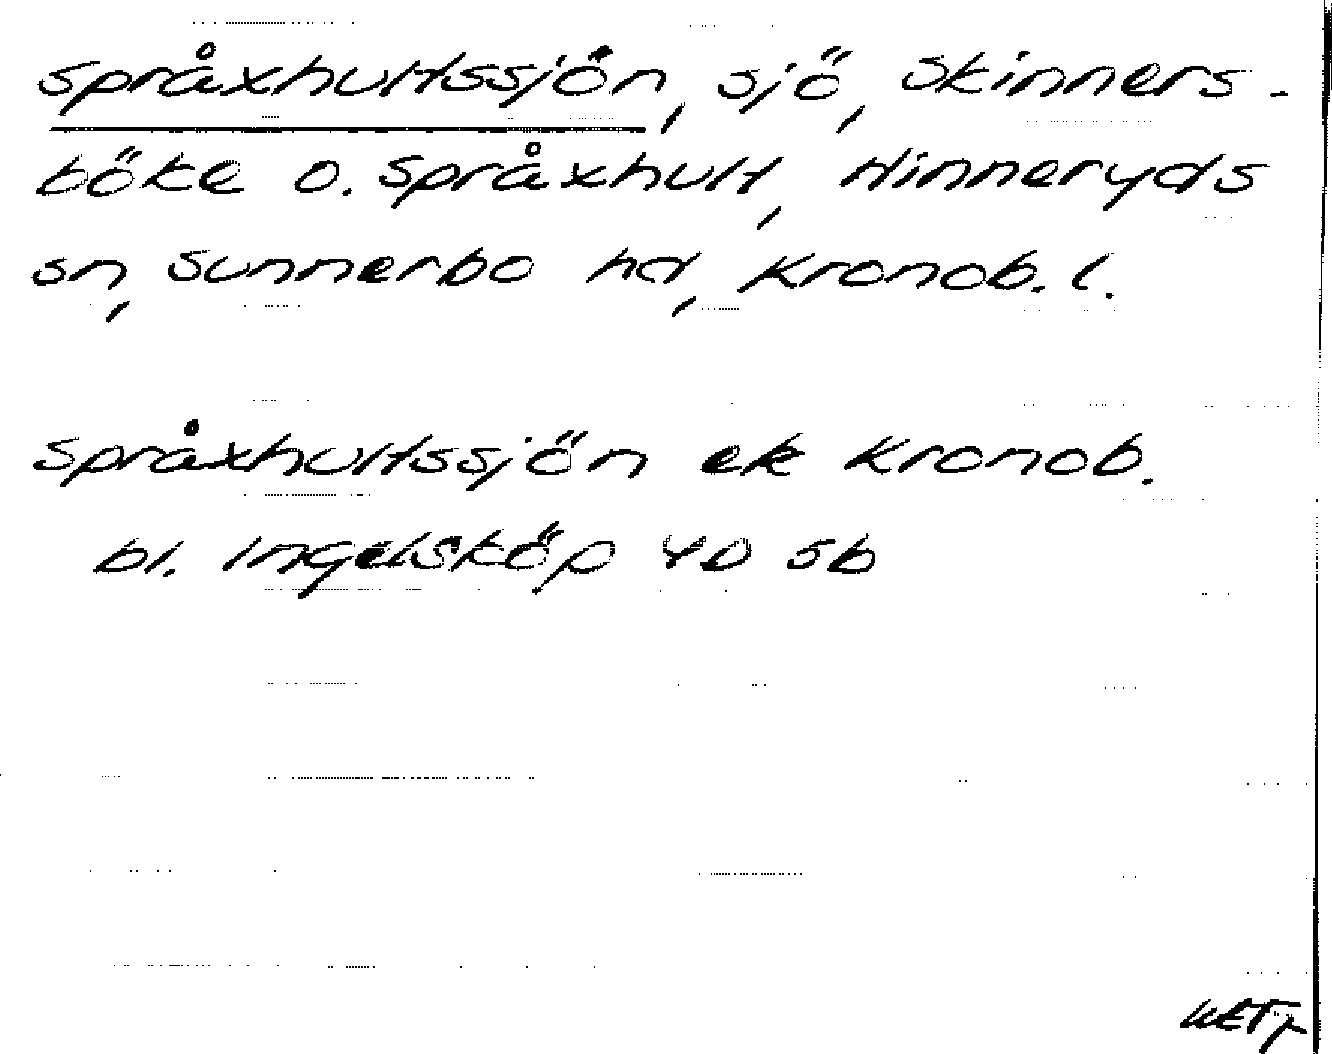 Språxhultssjön, sjö, Skinners-
böke o. Språxhult, Hinneryds
sn, Sunnerbo hd, Kronob. l.
Språxhultssjön ek Kronob.
bl. Ingelsköp 4D 5b